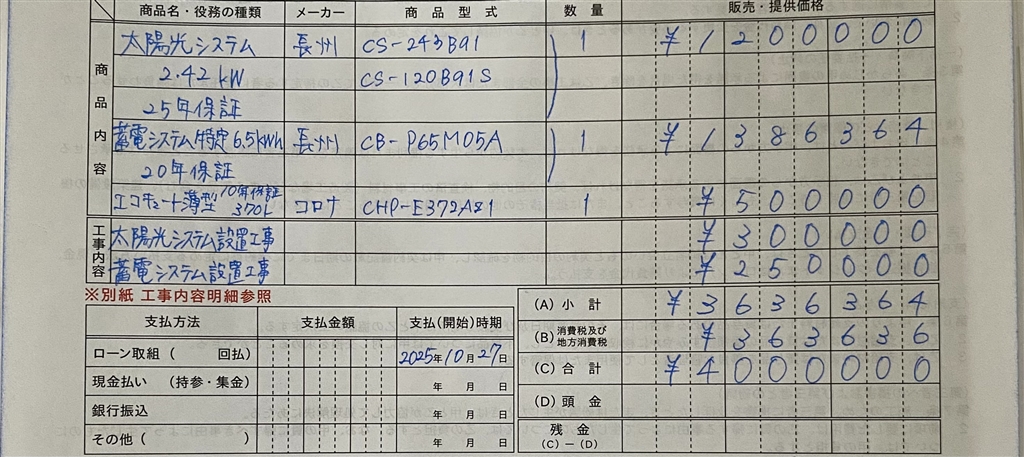 商品名・役務の種類 メーカー 商品型式 数量 販売・提供価格
商品内容
太陽光システム 長州 CS-243B91 1 ¥1200000
2.42kW CS-120B91S
25年保証
蓄電システム特定6.5kWh 長州 CB-P65M05A 1 ¥1386364
20年保証
エコキュート薄型 10年保証 370L コロナ CHP-E372AZ1 1 ¥500000
工事内容
太陽光システム設置工事 ¥300000
蓄電システム設置工事 ¥250000
※別紙 工事内容明細参照
(A) 小計 ¥3636364
支払方法 支払金額 支払(開始)時期
(B) 消費税及び地方消費税 ¥363636
ローン取組 ( 回払) 2025年10月27日
(C) 合計 ¥4000000
現金払い (持参・集金) 年 月 日
(D) 頭金
銀行振込 年 月 日
残金 (C)-(D)
その他 ( ) 年 月 日